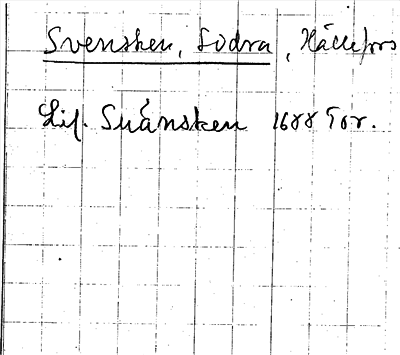 Svensken, Södra, Hällefors
Lil. Suånsken 1688 Tor.